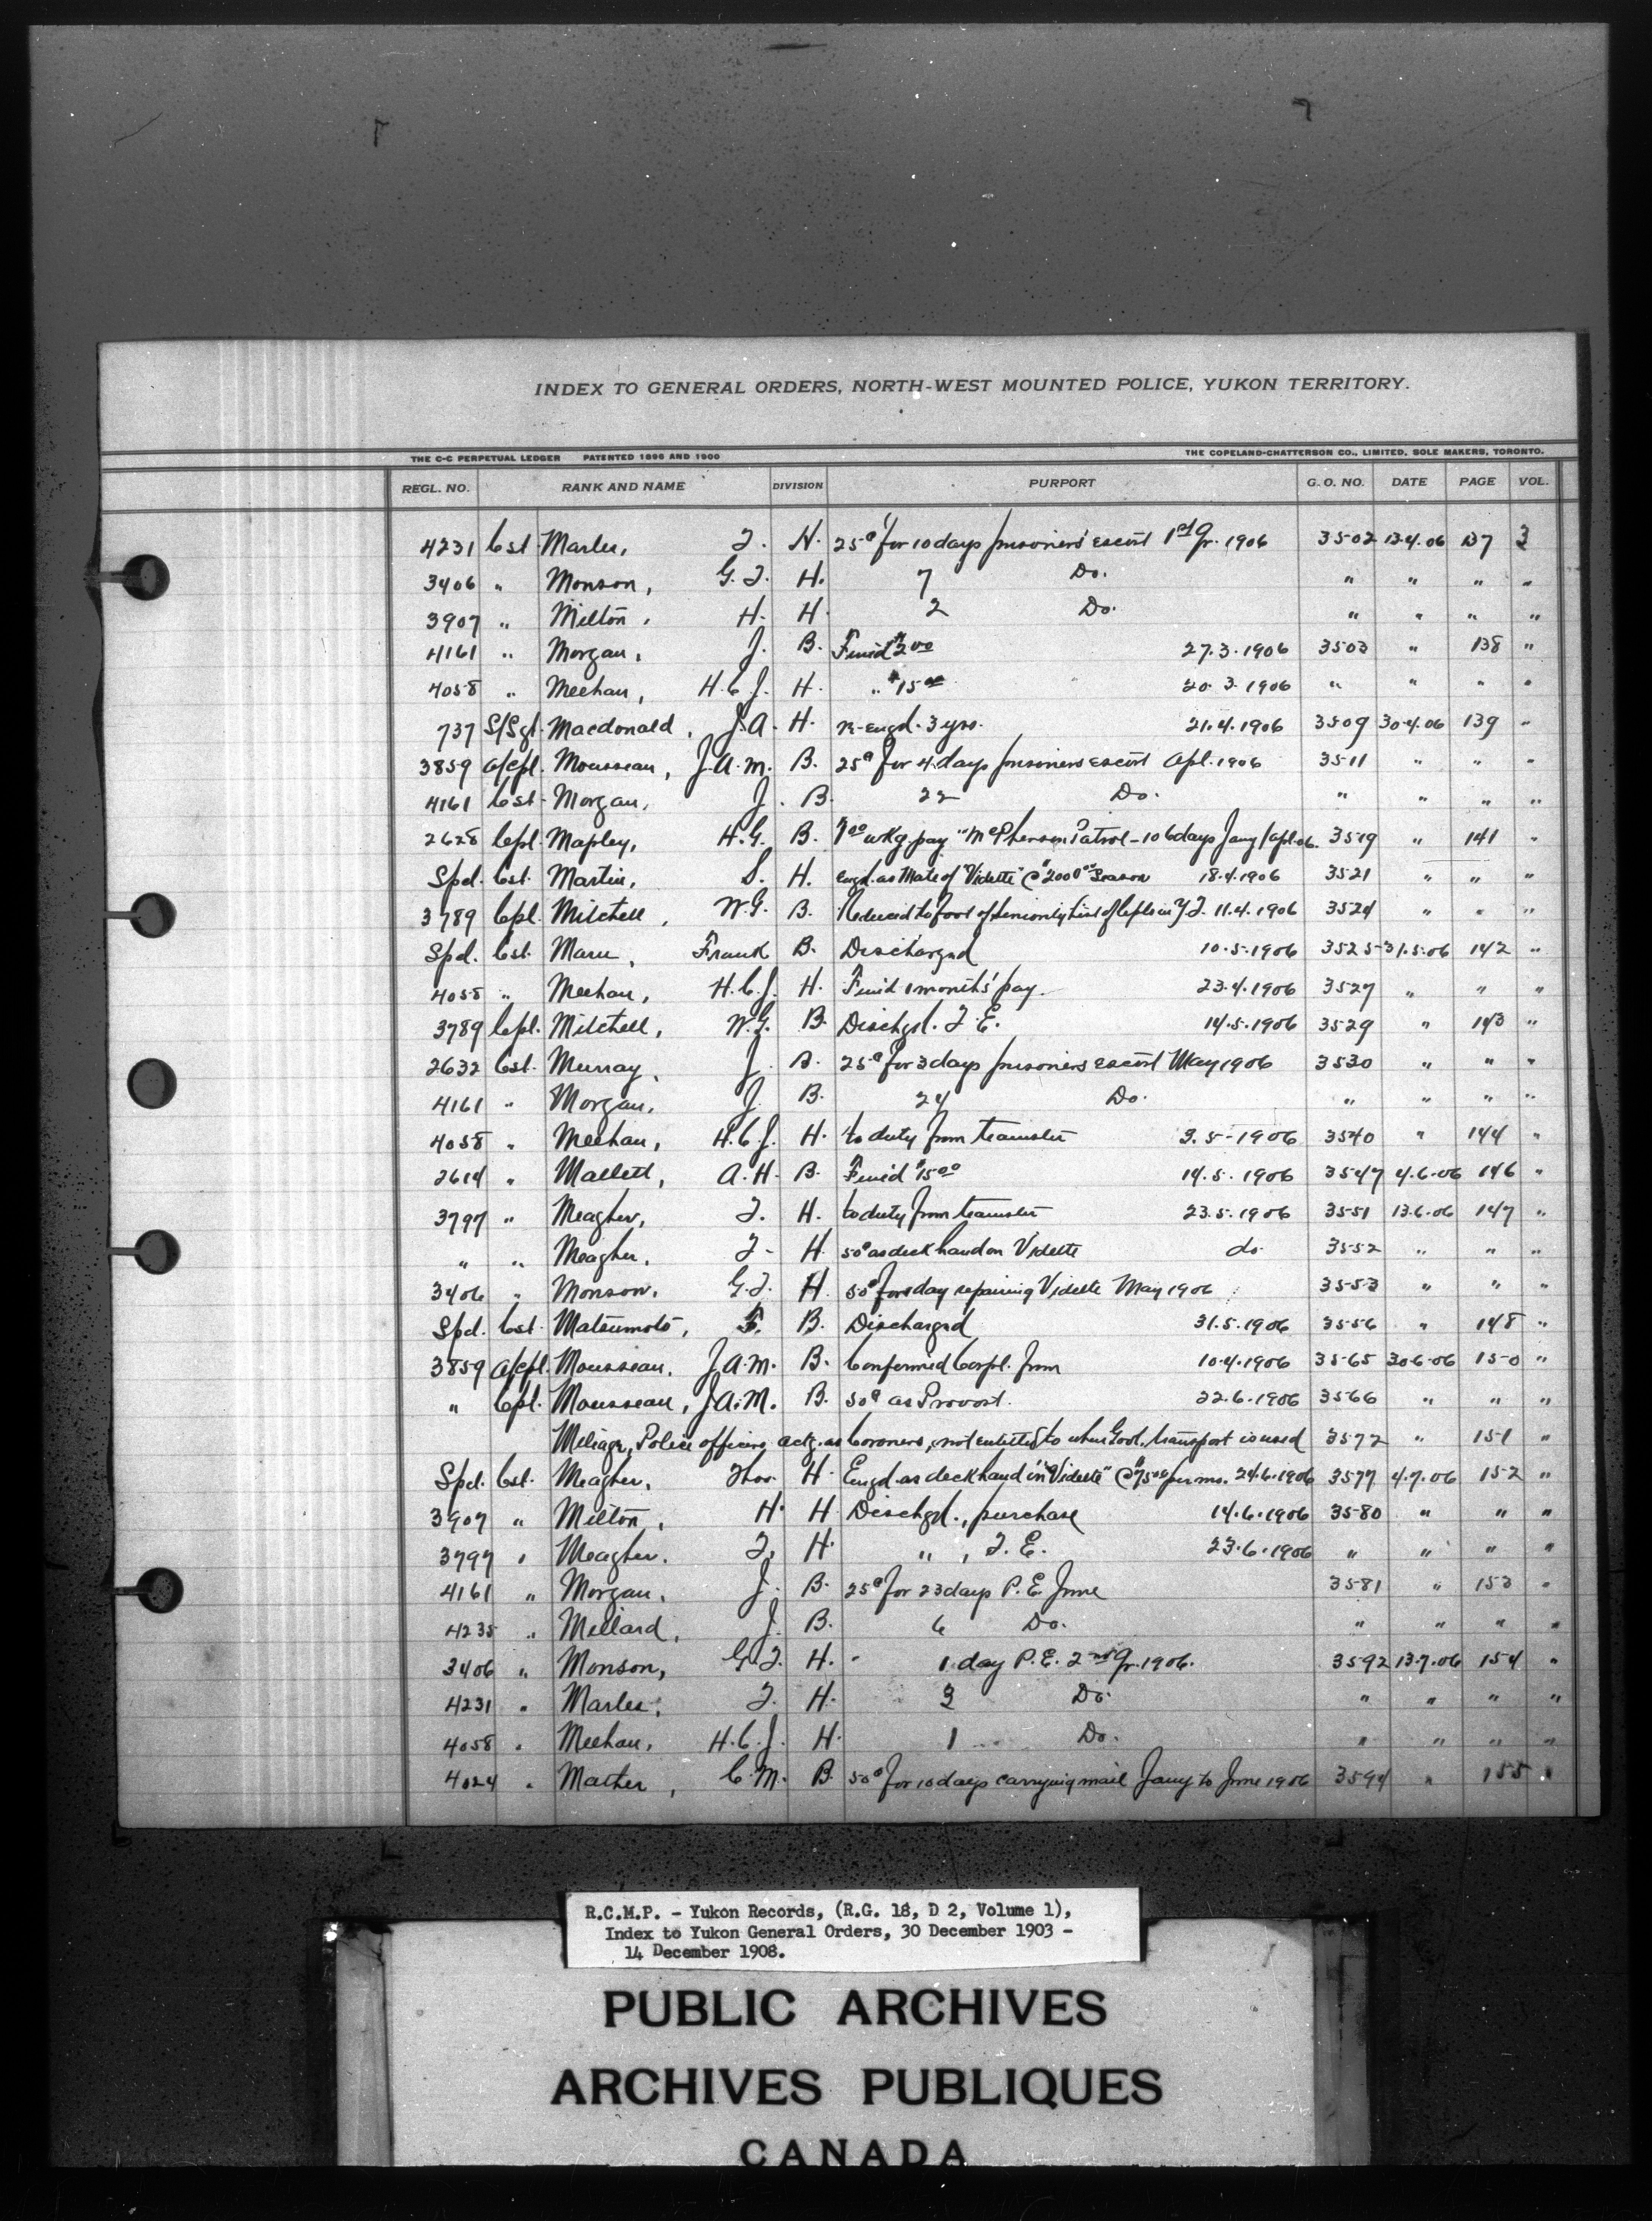 INDEX TO GENERAL ORDERS, NORTH-WEST MOUNTED POLICE, YUKON TERRITORY.
THE C-C PERPETUAL LEDGER PATENTED 1896 AND 1900 THE COPELAND-CHATTERSON CO., LIMITED, SOLE MAKERS, TORONTO.
REGL. NO. RANK AND NAME DIVISION PURPORT G. O. NO. DATE PAGE VOL.
4231 Cst. Marles, T. H. 25¢ for 10 days prisoners' escort 1st Qr. 1906 3502 13.4.06 137 3
3406 " Monson, G.T. H. 7 Do. " " " "
3907 " Milton, H. H. 2 Do. " " " "
4161 " Morgan, J. B. Fined $2.00 27.3.1906 3503 " 138 "
4058 " Meehan, H.C.J. H. " $15.00 20.3.1906 " " " "
737 S/Sgt. Macdonald, J.A. H. re-engd. 3 yrs. 21.4.1906 3509 30.4.06 139 "
3859 a/cpl. Mousseau, J.A.M. B. 25¢ for 4 days prisoners escort Apl. 1906 3511 " " "
4161 Cst. Morgan, J. B. 22 Do. " " " "
2628 Cpl. Mapley, H.G. B. wkg. pay "McPherson Patrol - 106 days Jany/Apl. 06. 3519 " 141 "
Spd. Cst. Martin, S. H. engd. as Mate of "Vidette" @ $200.00 Season 18.4.1906 3521 " " "
3789 Cpl. Mitchell, W.G. B. Reduced to foot of Seniority List of Cpls in Y.T. 11.4.1906 3524 " " "
Spd. Cst. Frank B. Discharged 10.5.1906 3525 31.5.06 142 "
4058 " Meehan, H.C.J. H. Fined 1 month's pay. 23.4.1906 3527 " " "
3789 Cpl. Mitchell, W.G. B. Dischgd. T.E. 14.5.1906 3529 " 143 "
2632 Cst. Murray, J. B. 25¢ for 3 days prisoners escort May 1906 3530 " " "
4161 " Morgan, J. B. 24 Do. " " " "
4058 " Meehan, H.C.J. H. to duty from teamster 3.5-1906 3540 " 144 "
2614 " Mallett, A.H. B. Fined $15.00 14.5.1906 3547 4.6.06 146 "
3797 " Meagher, T. H. to duty from teamster 23.5.1906 3551 13.6.06 147 "
" " Meagher, T. H. 50¢ as deck hand on Vidette do 3552 " " "
3406 " Monson, G.T. H. 50¢ for 1 day repairing Vidette May 1906 3553 " " "
Spd. Cst. Matsumoto, F. B. Discharged 31.5.1906 3556 " 148 "
3859 a/cpl. Mousseau, J.A.M. B. Confirmed Corpl. from 10.4.1906 3565 30.6.06 150 "
" Cpl. Mousseau, J.A.M. B. 50¢ as Provost. 22.6.1906 3566 " " "
Mileage, Police officers actg. as Coroners, not entitled to when Govt. transport is used 3572 " 151 "
Spd. Cst. Meagher, Thos. H. Engd. as deck hand in "Vidette" @ $75.00 per mo. 24.6.1906 3577 4.7.06 152 "
3907 " Milton, H. H. Dischgd., purchase 14.6.1906 3580 " " "
3797 " Meagher. T. H. " , T.E. 23.6.1906 " " " "
4161 " Morgan, J. B. 25¢ for 23 days P.E. June 3581 " 153 "
4235 " Millard, J. B. 6 Do. " " " "
3406 " Monson, G.T. H. " 1 day P.E. 2nd Qr. 1906. 3592 13.7.06 154 "
4231 " Marles, T. H. 3 Do. " " " "
4058 " Meehan, H.C.J. H. 1 Do. " " " "
4024 " Mather, C.M. B. 50¢ for 10 days carrying mail Jany to June 1906 3594 " 155 "
R.C.M.P. - Yukon Records, (R.G. 18, D 2, Volume 1),
Index to Yukon General Orders, 30 December 1903 -
14 December 1908.
PUBLIC ARCHIVES
ARCHIVES PUBLIQUES
CANADA